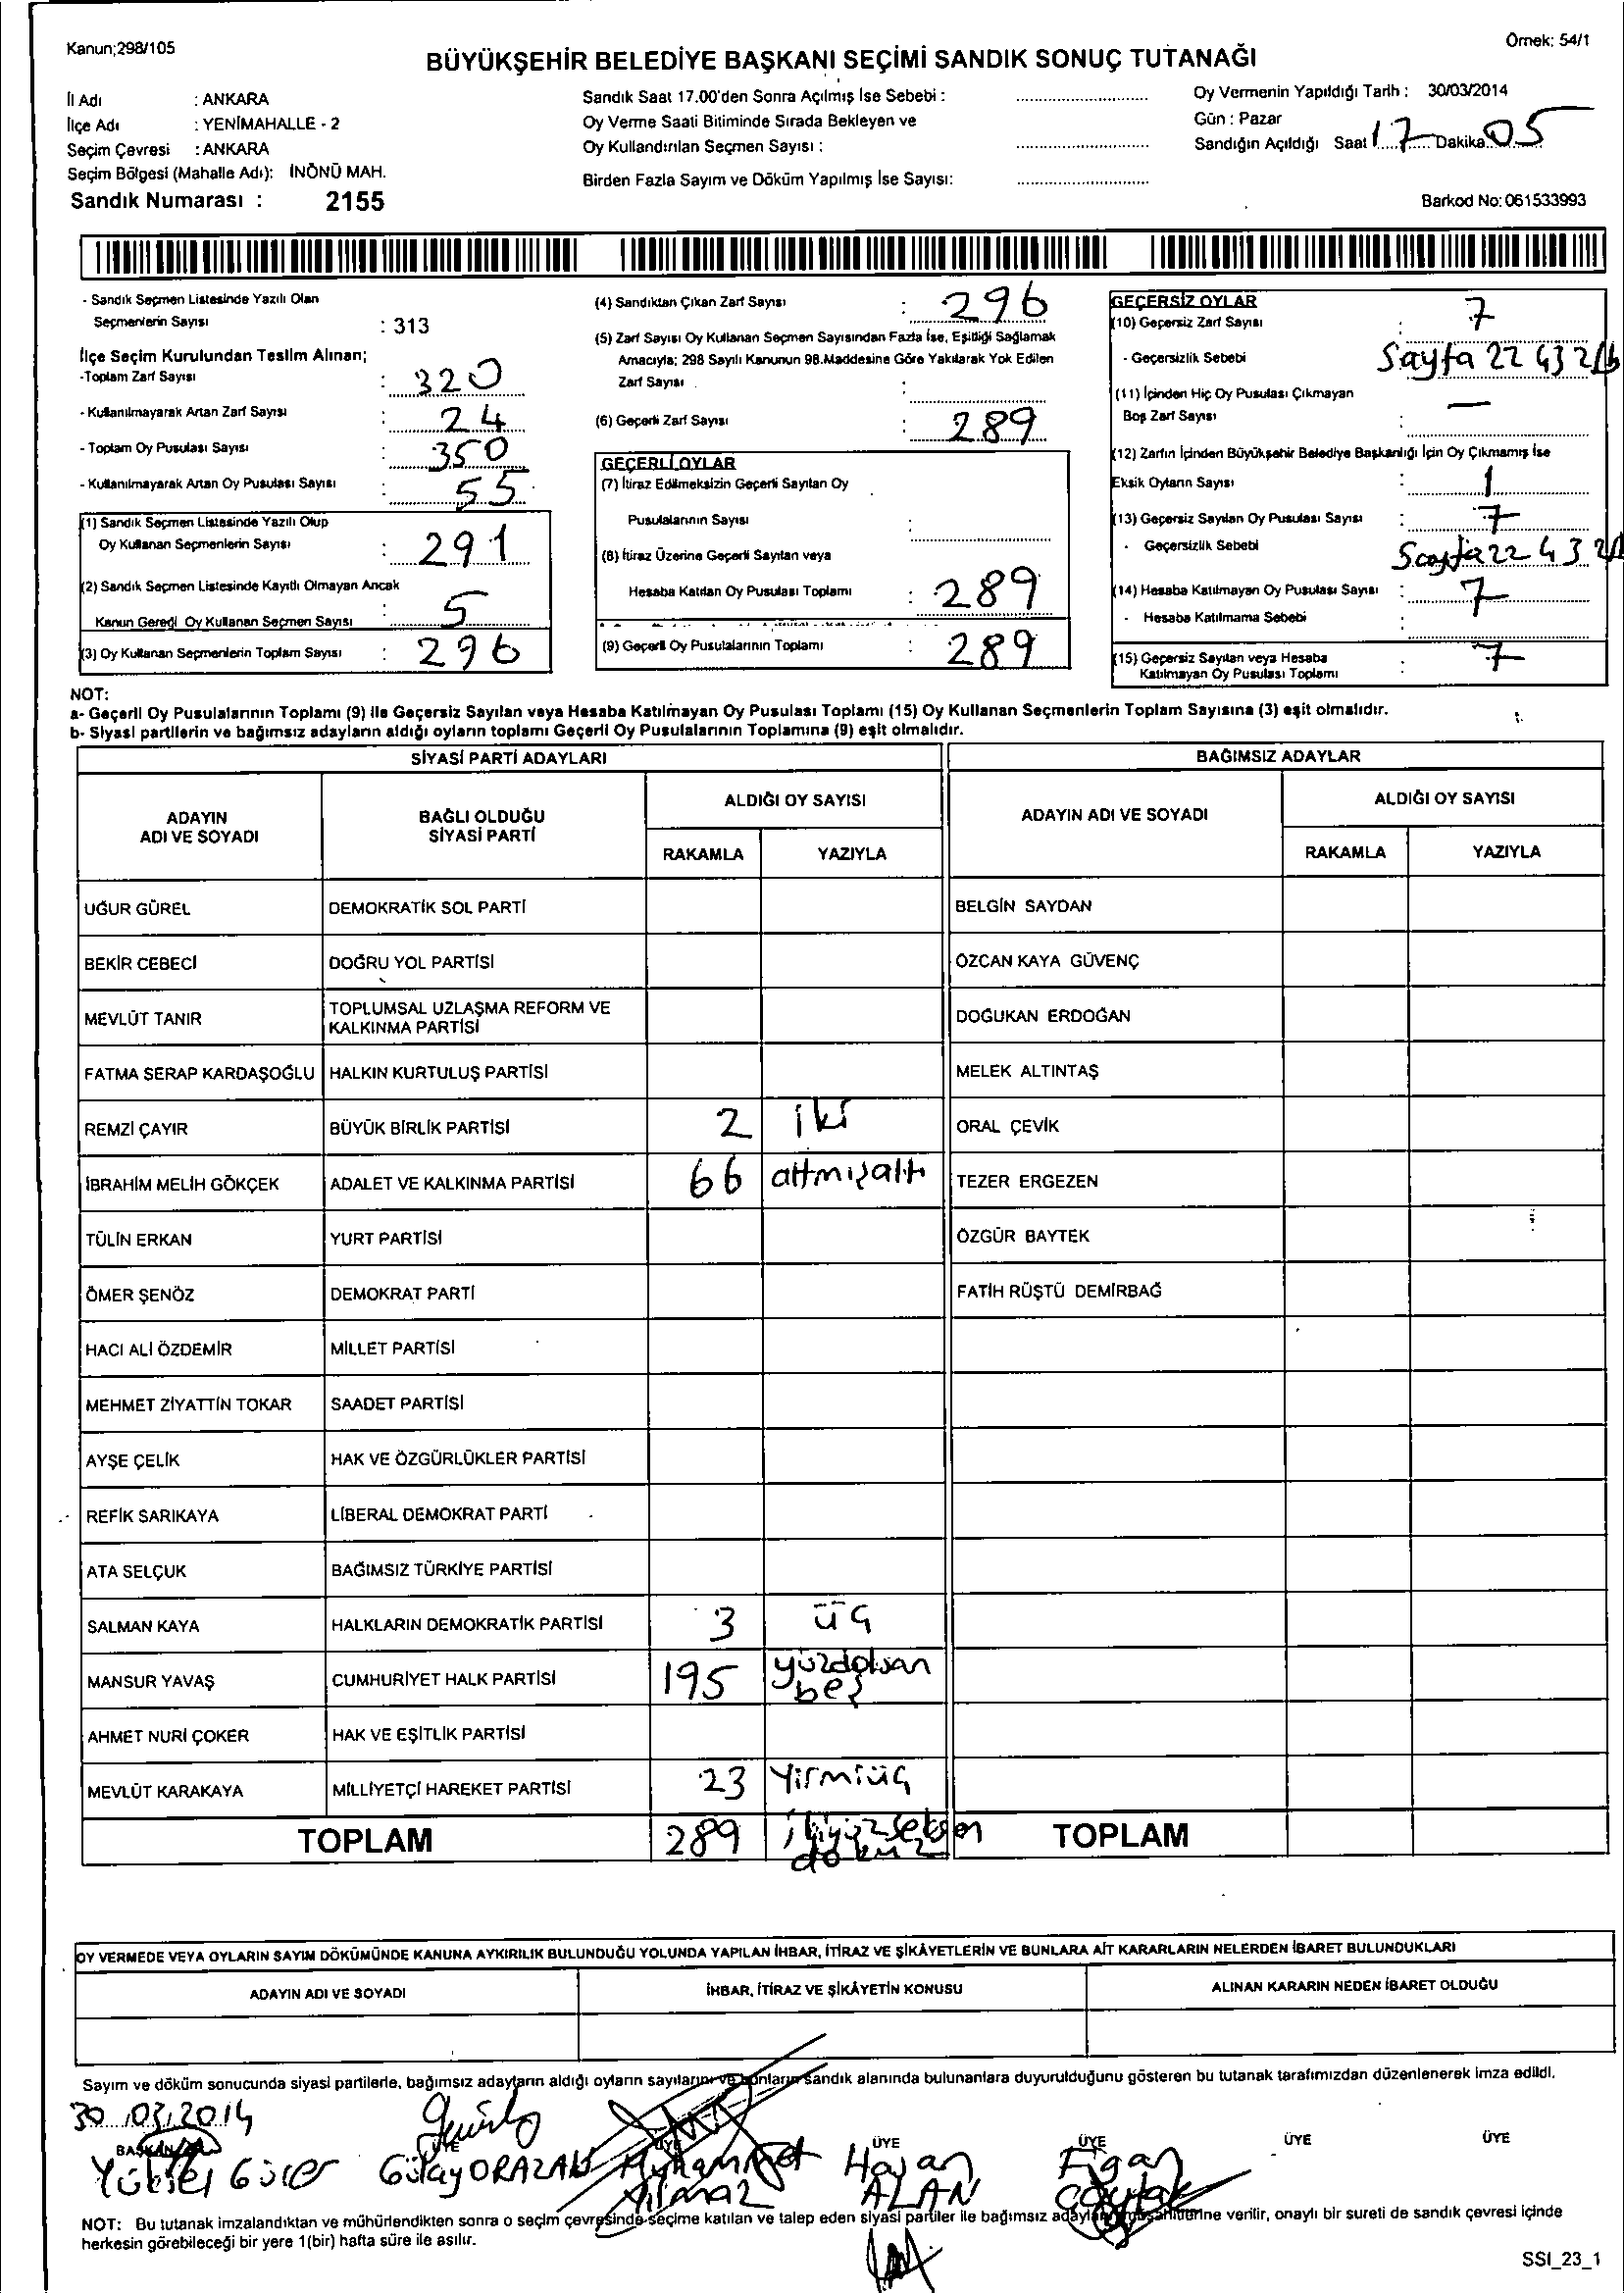 Kanun;298/105
Örnek: 54/1
BÜYÜKŞEHİR BELEDİYE BAŞKANI SEÇİMİ SANDIK SONUÇ TUTANAĞI
İl Adı : ANKARA
İlçe Adı : YENİMAHALLE - 2
Seçim Çevresi : ANKARA
Seçim Bölgesi (Mahalle Adı): İNÖNÜ MAH.
Sandık Numarası : 2155
Sandık Saat 17.00'den Sonra Açılmış İse Sebebi :
Oy Verme Saati Bitiminde Sırada Bekleyen ve
Oy Kullandırılan Seçmen Sayısı :
Birden Fazla Sayım ve Döküm Yapılmış İse Sayısı:
Oy Vermenin Yapıldığı Tarih : 30/03/2014
Gün : Pazar
Sandığın Açıldığı Saat 17 Dakika 05
Barkod No: 061533993
- Sandık Seçmen Listesinde Yazılı Olan
Seçmenlerin Sayısı : 313
İlçe Seçim Kurulundan Teslim Alınan;
-Toplam Zarf Sayısı : 320
- Kullanılmayarak Artan Zarf Sayısı : 24
- Toplam Oy Pusulası Sayısı : 350
- Kullanılmayarak Artan Oy Pusulası Sayısı : 55
(1) Sandık Seçmen Listesinde Yazılı Olup
Oy Kullanan Seçmenlerin Sayısı : 291
(2) Sandık Seçmen Listesinde Kayıtlı Olmayan Ancak
Kanun Gereği Oy Kullanan Seçmen Sayısı : 5
(3) Oy Kullanan Seçmenlerin Toplam Sayısı : 296
(4) Sandıktan Çıkan Zarf Sayısı : 296
(5) Zarf Sayısı Oy Kullanan Seçmen Sayısından Fazla İse, Eşitliği Sağlamak
Amacıyla; 298 Sayılı Kanunun 98.Maddesine Göre Yakılarak Yok Edilen
Zarf Sayısı :
(6) Geçerli Zarf Sayısı : 289
GEÇERLİ OYLAR
(7) İtiraz Edilmeksizin Geçerli Sayılan Oy
Pusulalarının Sayısı :
(8) İtiraz Üzerine Geçerli Sayılan veya
Hesaba Katılan Oy Pusulası Toplamı : 289
(9) Geçerli Oy Pusulalarının Toplamı : 289
GEÇERSİZ OYLAR
(10) Geçersiz Zarf Sayısı : 7
- Geçersizlik Sebebi Sayfa 22 43 2/b
(11) İçinden Hiç Oy Pusulası Çıkmayan
Boş Zarf Sayısı : —
(12) Zarfın İçinden Büyükşehir Belediye Başkanlığı İçin Oy Çıkmamış İse
Eksik Oyların Sayısı : 1
(13) Geçersiz Sayılan Oy Pusulası Sayısı : 7
- Geçersizlik Sebebi Sayfa 22 43 2/
(14) Hesaba Katılmayan Oy Pusulası Sayısı : 7
- Hesaba Katılmama Sebebi :
(15) Geçersiz Sayılan veya Hesaba
Katılmayan Oy Pusulası Toplamı : 7
NOT:
a- Geçerli Oy Pusulalarının Toplamı (9) ile Geçersiz Sayılan veya Hesaba Katılmayan Oy Pusulası Toplamı (15) Oy Kullanan Seçmenlerin Toplam Sayısına (3) eşit olmalıdır.
b- Siyasi partilerin ve bağımsız adayların aldığı oyların toplamı Geçerli Oy Pusulalarının Toplamına (9) eşit olmalıdır.
SİYASİ PARTİ ADAYLARI
BAĞIMSIZ ADAYLAR
ADAYIN
ADI VE SOYADI
BAĞLI OLDUĞU
SİYASİ PARTİ
ALDIĞI OY SAYISI
RAKAMLA YAZIYLA
ADAYIN ADI VE SOYADI
ALDIĞI OY SAYISI
RAKAMLA YAZIYLA
UĞUR GÜREL DEMOKRATİK SOL PARTİ BELGİN SAYDAN
BEKİR CEBECİ DOĞRU YOL PARTİSİ ÖZCAN KAYA GÜVENÇ
MEVLÜT TANIR TOPLUMSAL UZLAŞMA REFORM VE
KALKINMA PARTİSİ DOĞUKAN ERDOĞAN
FATMA SERAP KARDAŞOĞLU HALKIN KURTULUŞ PARTİSİ MELEK ALTINTAŞ
REMZİ ÇAYIR BÜYÜK BİRLİK PARTİSİ 2 iki ORAL ÇEVİK
İBRAHİM MELİH GÖKÇEK ADALET VE KALKINMA PARTİSİ 66 altmışaltı TEZER ERGEZEN
TÜLİN ERKAN YURT PARTİSİ ÖZGÜR BAYTEK
ÖMER ŞENÖZ DEMOKRAT PARTİ FATİH RÜŞTÜ DEMİRBAĞ
HACI ALİ ÖZDEMİR MİLLET PARTİSİ
MEHMET ZİYATTİN TOKAR SAADET PARTİSİ
AYŞE ÇELİK HAK VE ÖZGÜRLÜKLER PARTİSİ
REFİK SARIKAYA LİBERAL DEMOKRAT PARTİ
ATA SELÇUK BAĞIMSIZ TÜRKİYE PARTİSİ
SALMAN KAYA HALKLARIN DEMOKRATİK PARTİSİ 3 üç
MANSUR YAVAŞ CUMHURİYET HALK PARTİSİ 195 yüzdoksan
beş
AHMET NURİ ÇOKER HAK VE EŞİTLİK PARTİSİ
MEVLÜT KARAKAYA MİLLİYETÇİ HAREKET PARTİSİ 23 Yirmiüç
TOPLAM 289 ikiyüzseksen
dokuz TOPLAM
OY VERMEDE VEYA OYLARIN SAYIM DÖKÜMÜNDE KANUNA AYKIRILIK BULUNDUĞU YOLUNDA YAPILAN İHBAR, İTİRAZ VE ŞİKÂYETLERİN VE BUNLARA AİT KARARLARIN NELERDEN İBARET BULUNDUKLARI
ADAYIN ADI VE SOYADI İHBAR, İTİRAZ VE ŞİKÂYETİN KONUSU ALINAN KARARIN NEDEN İBARET OLDUĞU
Sayım ve döküm sonucunda siyasi partilerle, bağımsız adayların aldığı oyların sayılarını ve bunların sandık alanında bulunanlara duyurulduğunu gösteren bu tutanak tarafımızdan düzenlenerek imza edildi.
30.03.2014
BAŞKAN ÜYE ÜYE ÜYE ÜYE ÜYE ÜYE
Yüksel Gülay ORAZAN Muhammet Hasan
Yılmaz ALAN
NOT: Bu tutanak imzalandıktan ve mühürlendikten sonra o seçim çevresinde seçime katılan ve talep eden siyasi partiler ile bağımsız adayların müşahitlerine verilir, onaylı bir sureti de sandık çevresi içinde
herkesin görebileceği bir yere 1(bir) hafta süre ile asılır.
SSI_23_1